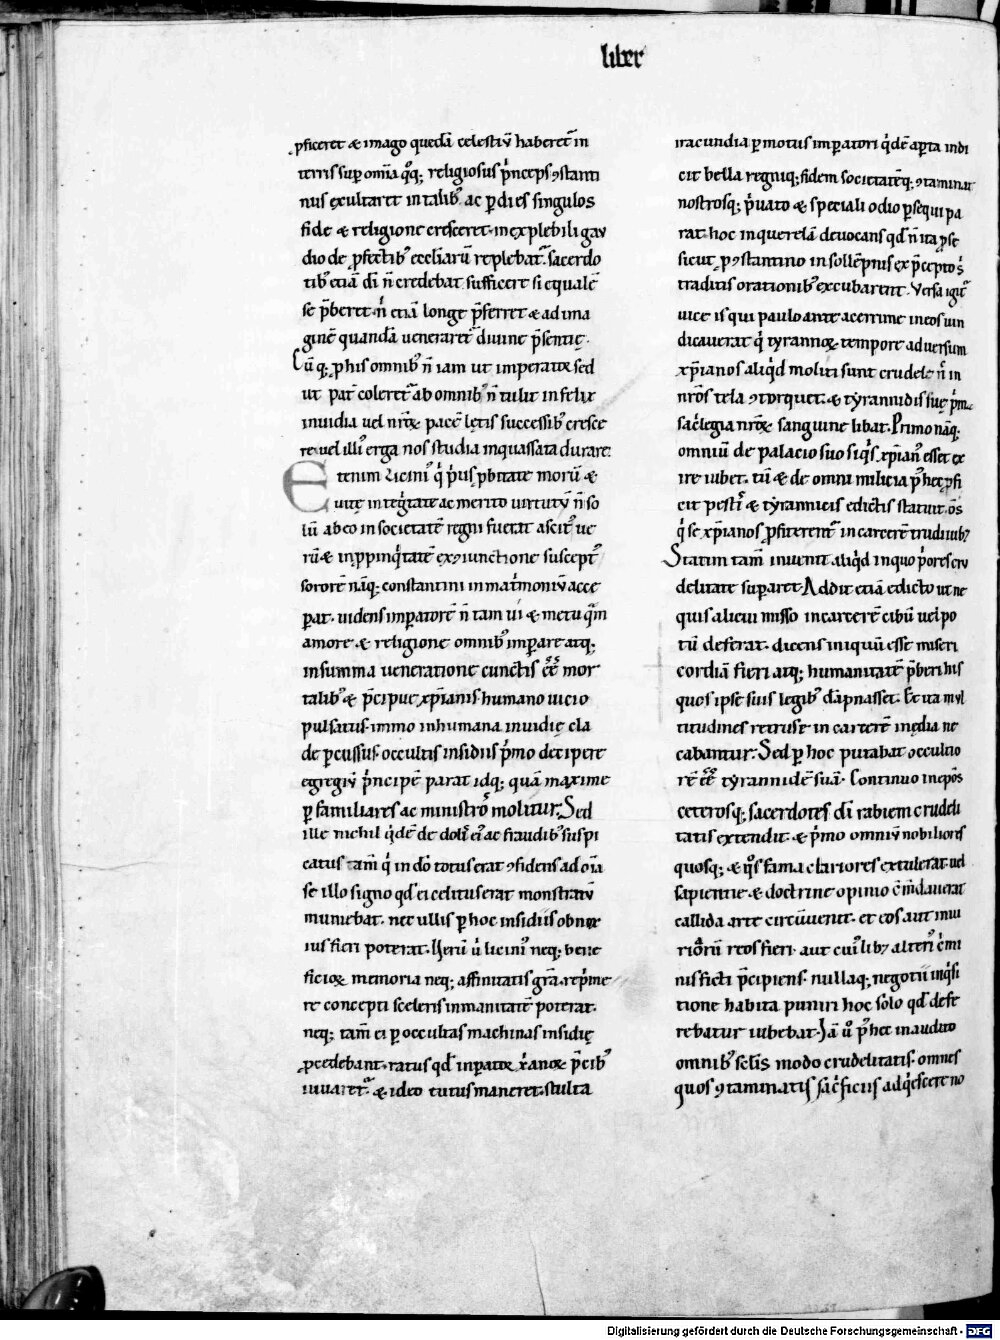 liber
ꝓficeret & imago quedā celestiū haberet᷑ in
terris sup̱ omīa qͦq; religiosus p̓nceps ꝯstanti
nus exultaret in talib᷒ ac p̱ dies singulos
fide & religione cresceret· inexplebili gau
dio de ꝓfectib᷒ eccl̄iarū replebat᷑· sacerdo
tib᷒ etiā dī n̄ credebat sufficere si equalē
se p̄beret· n̓ etiā longe p̄ferret & ad ima
ginē quandā veneraret᷑ divine p̄sentię·
Cū q; ꝓ his omnib᷒ n̄ iam ut imperator sed
ut pat̓ coleret᷑ ab omnib᷒ n̄ tulit infelix
invidia vel nr̄oꝝ pacē lętis successib᷒ cresce
re· vel illi᷒ erga nos studia inquassata durare·
Etenim Licini᷒ q̓ p̓us ꝓbitate morū &
vitę integ̓tate ac merito virtutū n̄ so
lū ab eo in societatē regni fuerat ascit᷒ ve
rū & in ꝓpinq̓tatē ex ꝯiunctione suscept᷒
sororē nāq; constantini in mat̓moniū acce
perat· videns imp̱atorē n̄ tam vi & metu q̄m
amore & religione omnib᷒ imp̱are atq;
in summa veneratione cunctis eē mor
talib᷒ & p̄cipue xp̄ianis humano vicio
pulsatus· immo inhumana invidię cla
de p̱cussus· occultis insidiis p̓mo decipere
egregiū p̓ncipē parat idq; quā maxime
p̱ familiares ac ministros molitur· Sed
ille nichil q̓dē de doli ei᷒ ac fraudib᷒ suspi
catus tam̄ q̓ in dō totus erat ꝯfidens ad oīa
se illo signo qd̄ ei celitus erat monstratū
muniebat· nec ullis p̱ hoc insidiis obnox
ius fieri poterat· Verū ů licini᷒ neq; bene
ficioꝝ memoria neq; affinitatis gr̄a rep̓me
re concepti sceleris inmanitatē poterat·
neq; tam̄ ei p̱ occultas machinas insidię
ꝓcedebant· ratus qd̄ inp̱atoꝝ xp̄ianoꝝ p̄cib᷒
iuvaret᷑ & ideo tutus maneret· stulta
iracundia p̱motus imp̱atori q̓dē ap̱ta indi
cit bella regniq; fidem societatēq; ꝯtaminat
nostrosq; p̓vato & speciali odio p̱sequi pa
rat· hoc in querelā devocans qd̄ n̄ ita ꝓ se
sicut ꝓ ꝯstantino in sollēpnis ex p̄ceptoris
traditis orationib᷒ excubarent· Versa igit᷑
vice is qui paulo ante acerrime in eos vin
dicaverat q̓ tyrannoꝝ tempore adversum
xp̄ianos aliq̓d moliti sunt crudele n̄ in
nr̄os tela ꝯtorquet· & tyrannidis suę p̓ma
sac̓legia nr̄oꝝ sanguine libat· Primo nāq;
omniū de palacio suo siq̓s xp̄ian᷒ esset ex
ire iubet· tū & de omni milicia p᷒ hec ꝓfi
cit pestif & tyrannicis edictis statuit oīs
q̓ se xp̄ianos ꝓfiterent᷑ in carcerē trudi iub&
Statim tam̄ invenit aliq̓d in quo p̓ores cru
delitate sup̱aret· Addit etiā edicto ut ne
quis alicui misso in carcerē cibū vel po
tū deferat· dicens iniquū esse miseri
cordiā fieri atq; humanitatē p̄beri his
quos ipse suis legib᷒ dāpnasset· Et ita mul
titudines retruse in carcerē inędia ne
cabantur· Sed p̱ hoc putabat occultio
rē eē tyrannidē suā· Continuo in ep̄os
ceterosq; sacerdotes dī rabiem crudeli
tatis extendit· & p̓mo omniū nobiliores
quosq; & q̓s fama clariores extulerat vel
sapientie & doctrine opinio cōmdaverat
callida arte circūvenit· et eos aut iniu
riarū reos fieri· aut cui᷒lib& alteri᷒ c̓mi
nis ficti p̄cipiens· nullaq; negotii inq̓si
tione habita puniri hoc solo qd̄ defe
rebatur iubebat· Iā ů p᷒ hec inaudito
omnib᷒ sc̄lis modo crudelitatis· omnes
quos ꝯtaminatis sac̓ficiis adq̓escere no